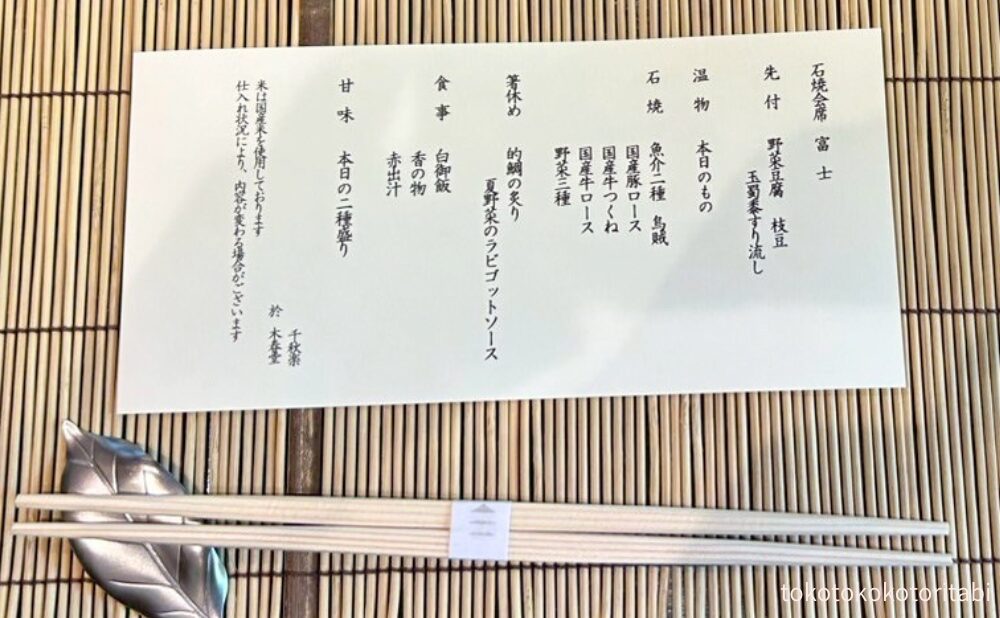 石焼会席 富士
先付 野菜豆腐 枝豆
玉蜀黍すり流し
温物 本日のもの
石焼 魚介二種 烏賊
国産豚ロース
国産牛つくね
国産牛ロース
野菜三種
箸休め 的鯛の炙り
夏野菜のラビゴットソース
食事 白御飯
香の物
赤出汁
甘味 本日の二種盛り
千秋楽
於 木春堂
米は国産米を使用しております
仕入れ状況により、内容が変わる場合がございます
tokotokokotoritabi